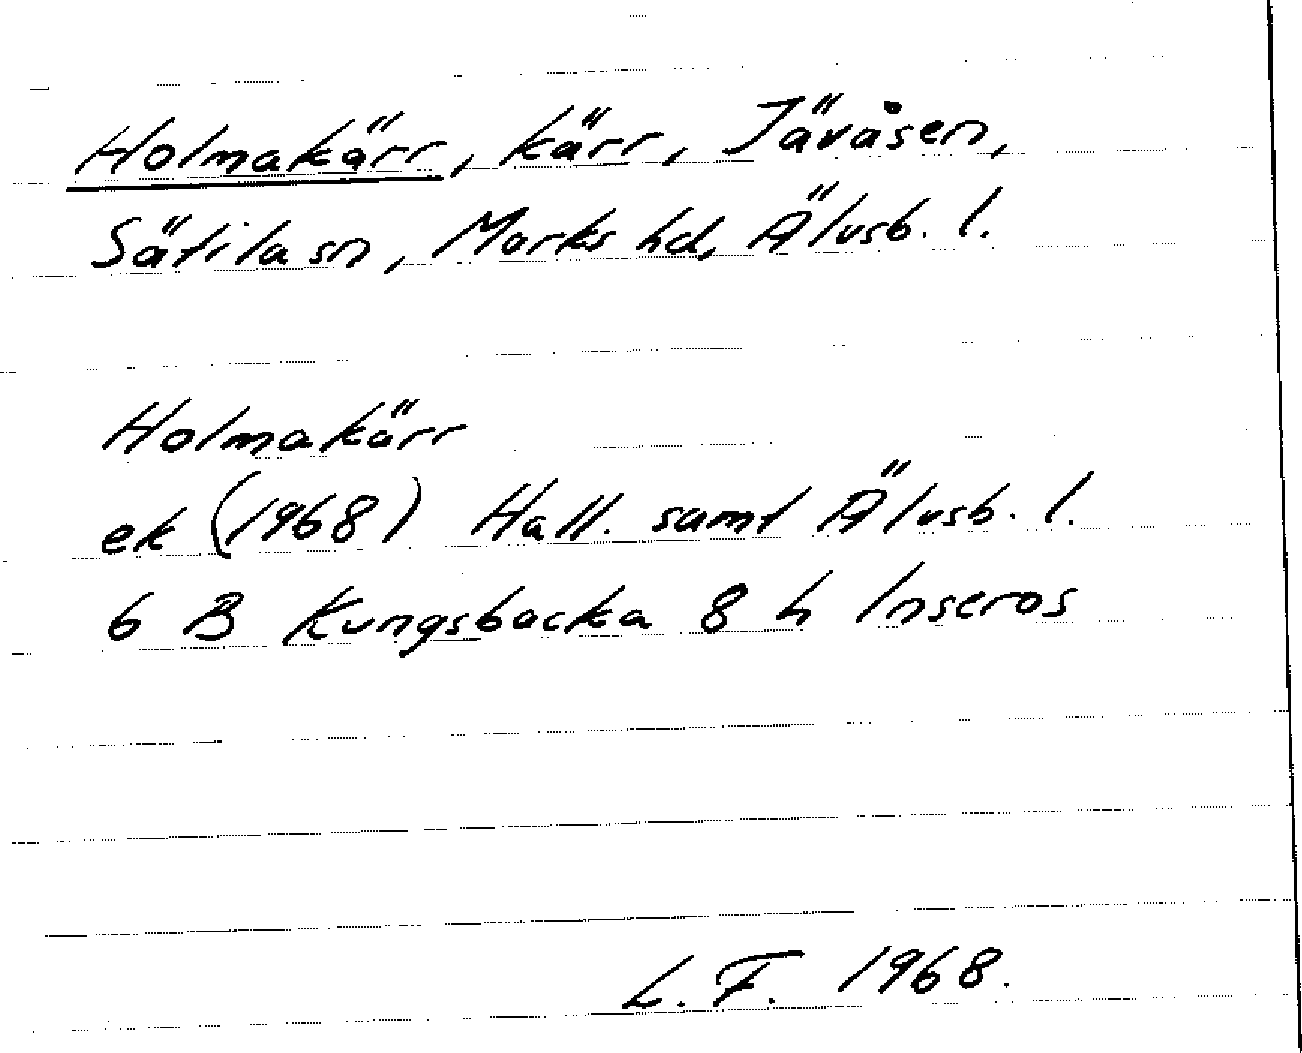 Holmakärr, kärr, Jäväsen,
Sätila sn, Marks hd, Älvsb. l.
Holmakärr
ek (1968) Hall. samt Älvsb. l.
6 B Kungsbacka 8 h Inseros
L. F. 1968.